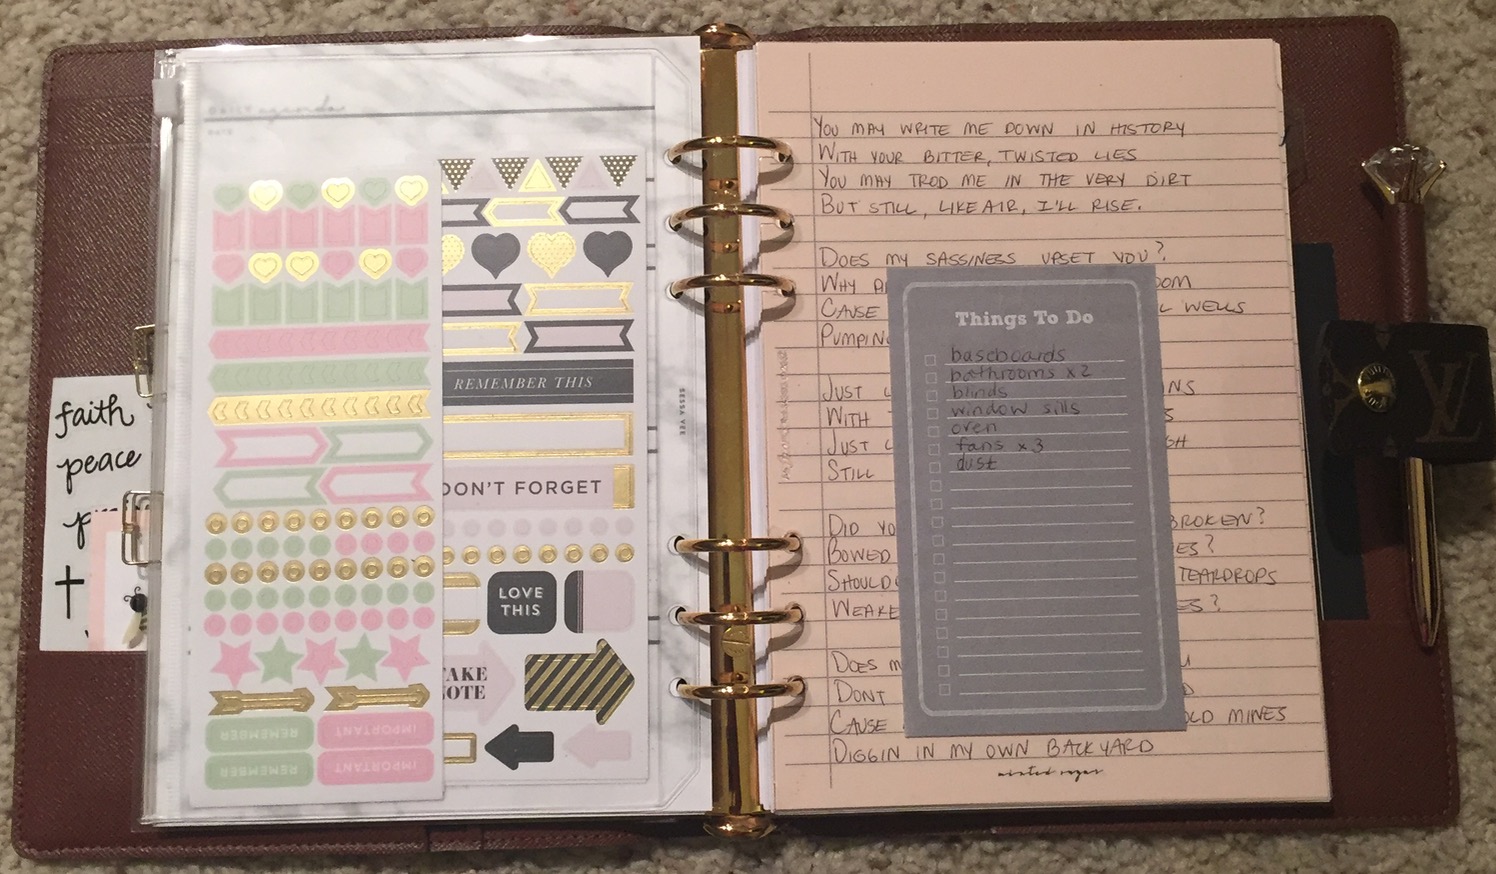 DAILY agenda
DATE
REMEMBER THIS
DON'T FORGET
LOVE
THIS
TAKE
NOTE
REMEMBER
IMPORTANT
REMEMBER
IMPORTANT
SESSA VEE
faith
peace
YOU MAY WRITE ME DOWN IN HISTORY
WITH YOUR BITTER, TWISTED LIES
YOU MAY TROD ME IN THE VERY DIRT
BUT STILL, LIKE AIR, I'LL RISE.
DOES MY SASSINESS UPSET YOU?
WHY
CAUSE WELLS
PUMPIN
JUST
WITH
JUST
STILL
DID YO BROKEN?
BOWED
SHOULD TEARDROPS
WEAKE
DOES M
DONT
CAUSE OLD MINES
DIGGIN IN MY OWN BACKYARD
minted sugar
Things To Do
baseboards
bathrooms x2
blinds
window sills
oven
fans x3
dust
LV